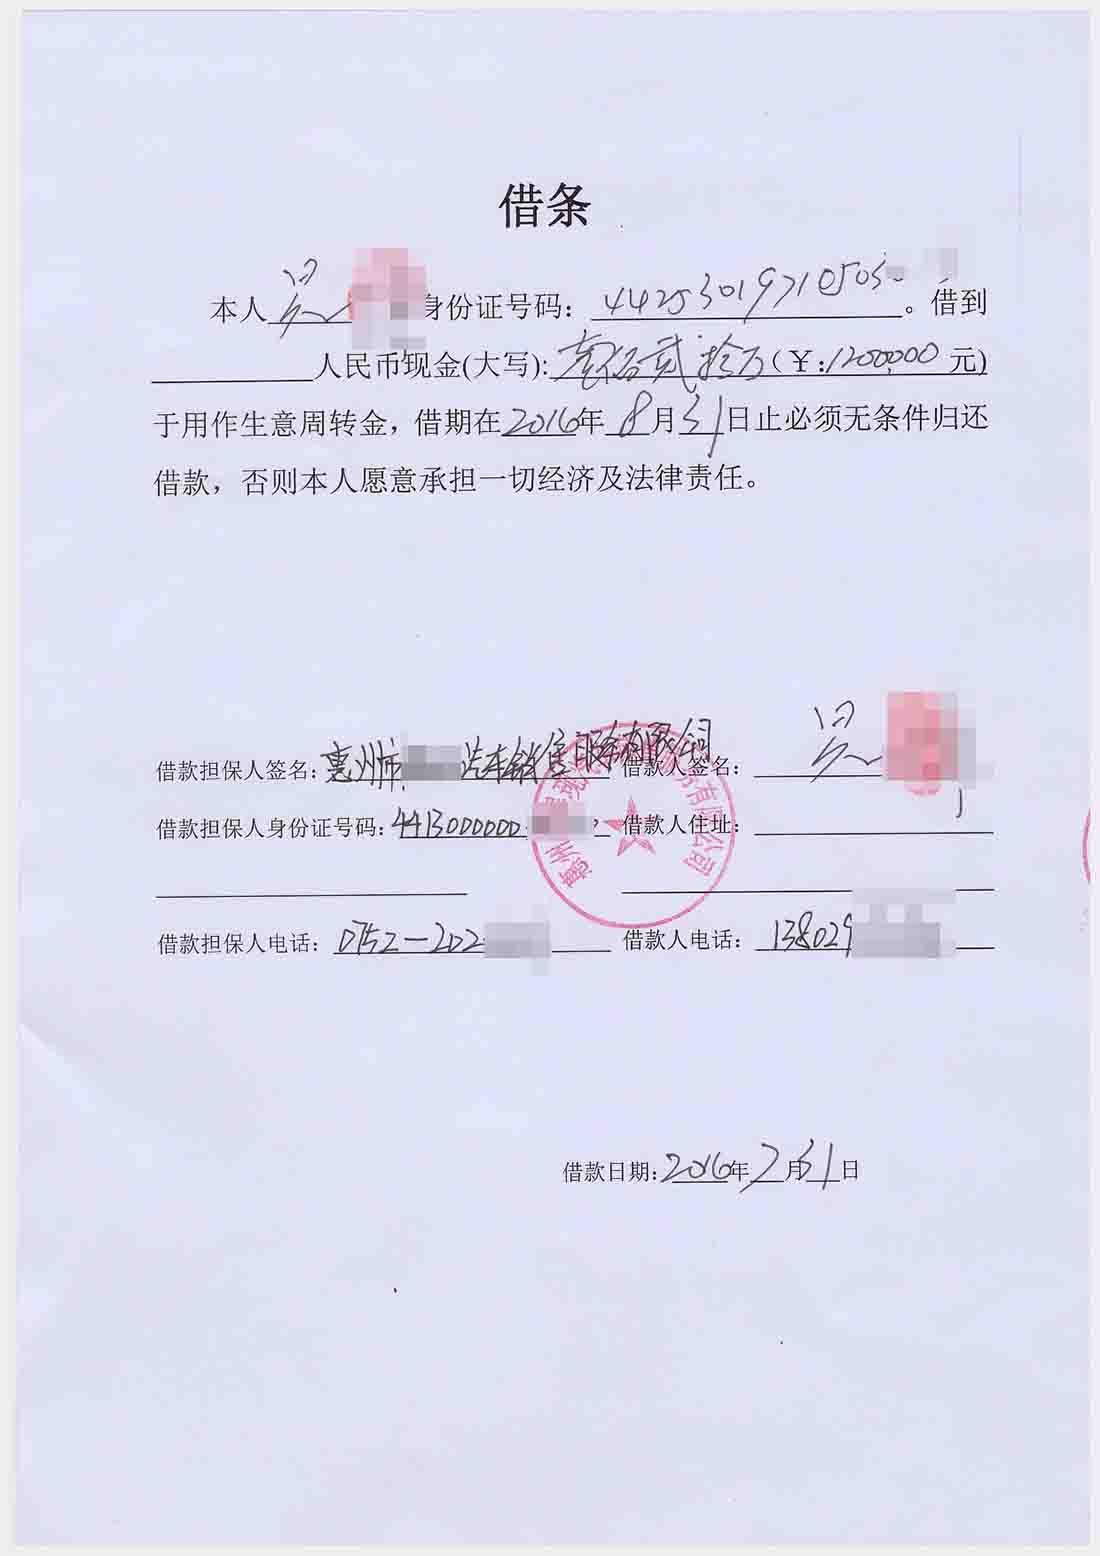 借条
本人吴 身份证号码：44253019710503 。借到
人民币现金(大写)：壹佰贰拾万(￥:1200000元)
于用作生意周转金，借期在2016年8月31日止必须无条件归还
借款，否则本人愿意承担一切经济及法律责任。
借款担保人签名：惠州市 汽车销售服务有限公司 借款人签名：吴
借款担保人身份证号码：4413000000 借款人住址：
借款担保人电话：0752-202 借款人电话：138029
惠州 有限公司
借款日期：2016年7月31日